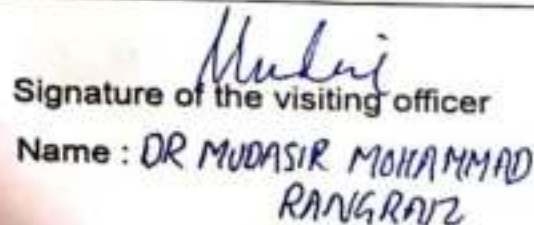 Signature of the visiting officer
Name : DR MUDASIR MOHAMMAD
RANGRAIZ